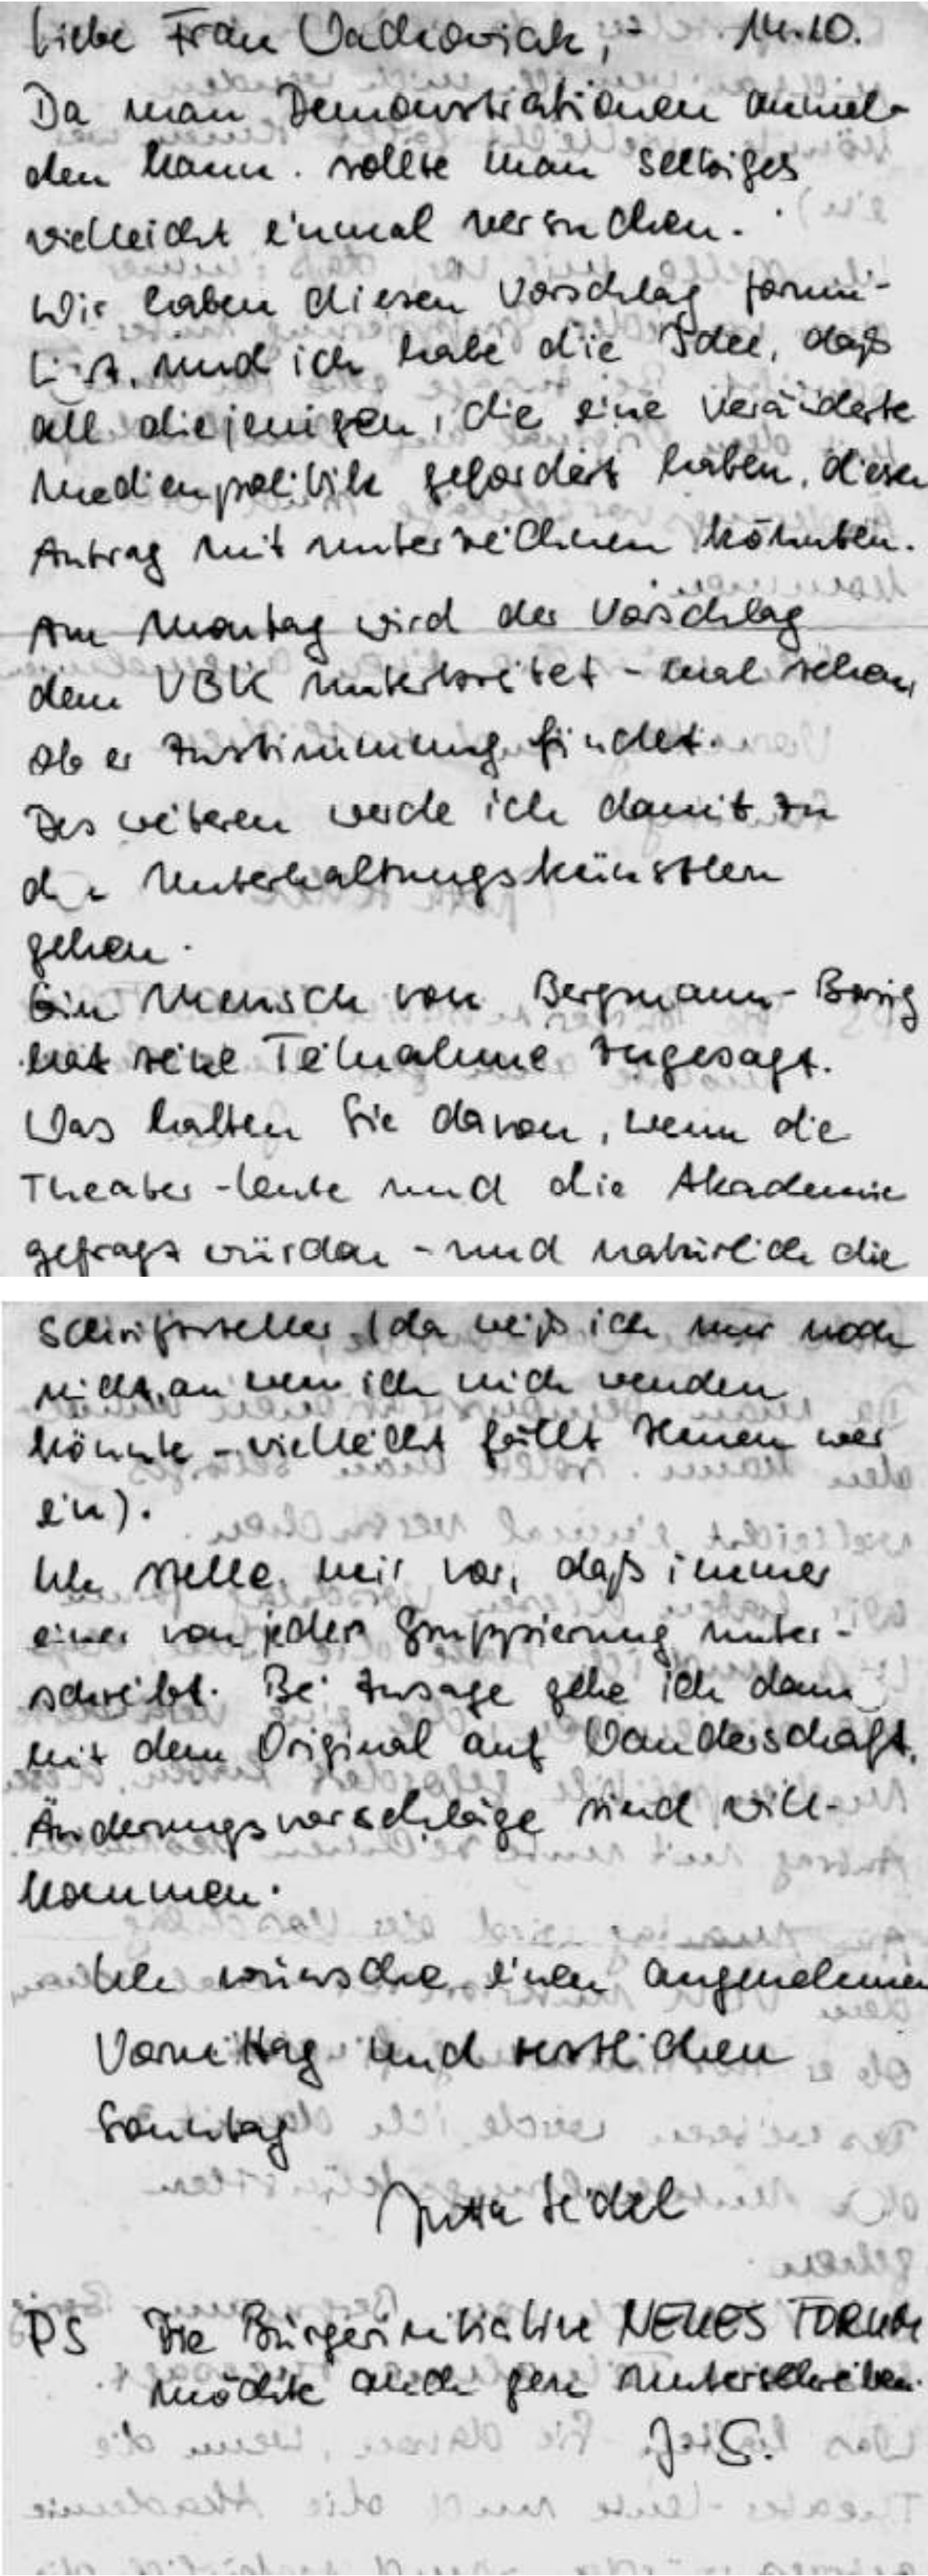 Liebe Frau Wachowiak, - 14.10.
Da man Demonstrationen anmel-
den kann. sollte man selbiges
vielleicht einmal versuchen.
Wir haben diesen Vorschlag formu-
liert, und ich habe die Idee, daß
all diejenigen, die eine veränderte
Medienpolitik gefordert haben, diesen
Antrag mit unterzeichnen könnten.
Am Montag wird der Vorschlag
dem VBK unterbreitet - mal schau,
ob er Zustimmung findet.
Des weiteren werde ich damit zu
den Unterhaltungskünstlern
gehen.
Ein Mensch von Bergmann-Borsig
hat seine Teilnahme zugesagt.
Was halten Sie davon, wenn die
Theater-leute und die Akademie
gefragt würden - und natürlich die
Schriftsteller (da weiß ich nur noch
nicht, an wen ich mich wenden
könnte - vielleicht fällt Ihnen wer
ein).
Ich stelle mir vor, daß immer
einer von jeder Gruppierung unter-
schreibt. Bei Zusage gehe ich dann
mit dem Original auf Wanderschaft.
Änderungsvorschläge sind will-
kommen.
Ich wünsche einen angenehmen
Vormittag und restlichen
Sonntag
Jutta Seidel
PS Die Bürgerinitiative NEUES FORUM
möchte auch gern unterschreiben.
J. S.